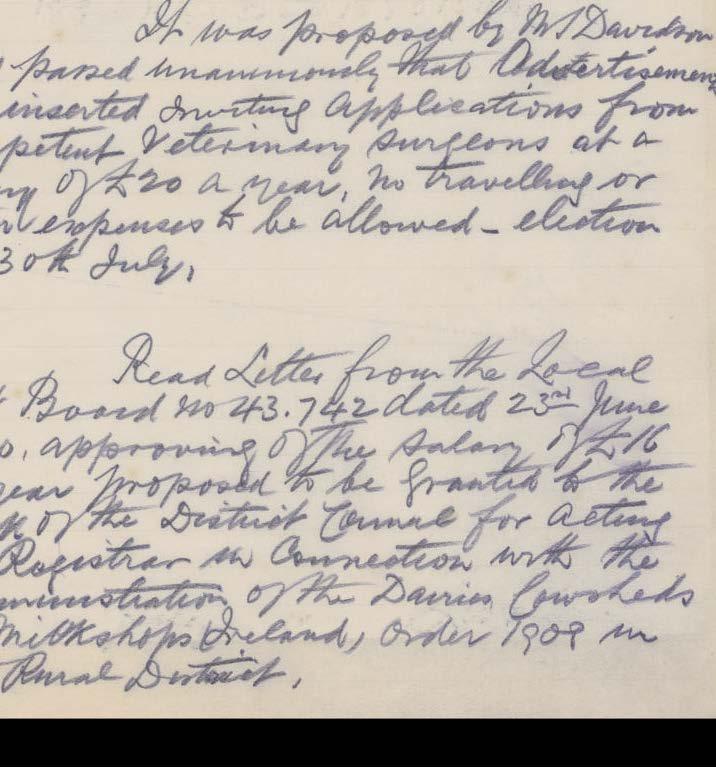 It was proposed by Mr Davidson
passed unanimously that Advertisements
inserted Inviting Applications from
petent Veterinary Surgeons at a
ry of £20 a year, no travelling or
expenses to be allowed - election
30th July,
Read Letter from the Local
Board No 43.742 dated 23rd June
0. approving of the Salary of £16
year proposed to be granted to the
k of the District Council for acting
Registrar in Connection with the
ministration of the Dairies Cowsheds
Milkshops (Ireland) Order 1908 in
Rural District.